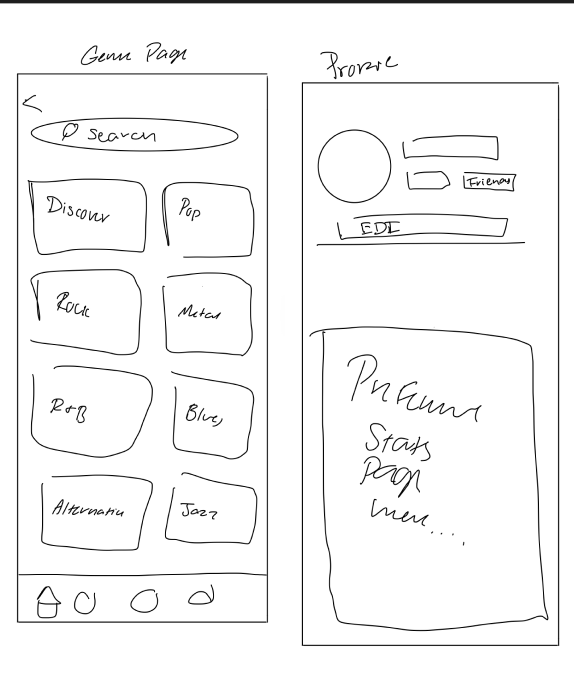 Genre Page
search
Discover
Pop
Rock
Metal
R+B
Blues
Alternative
Jazz
Profile
Friends
EDI
Stats
Page